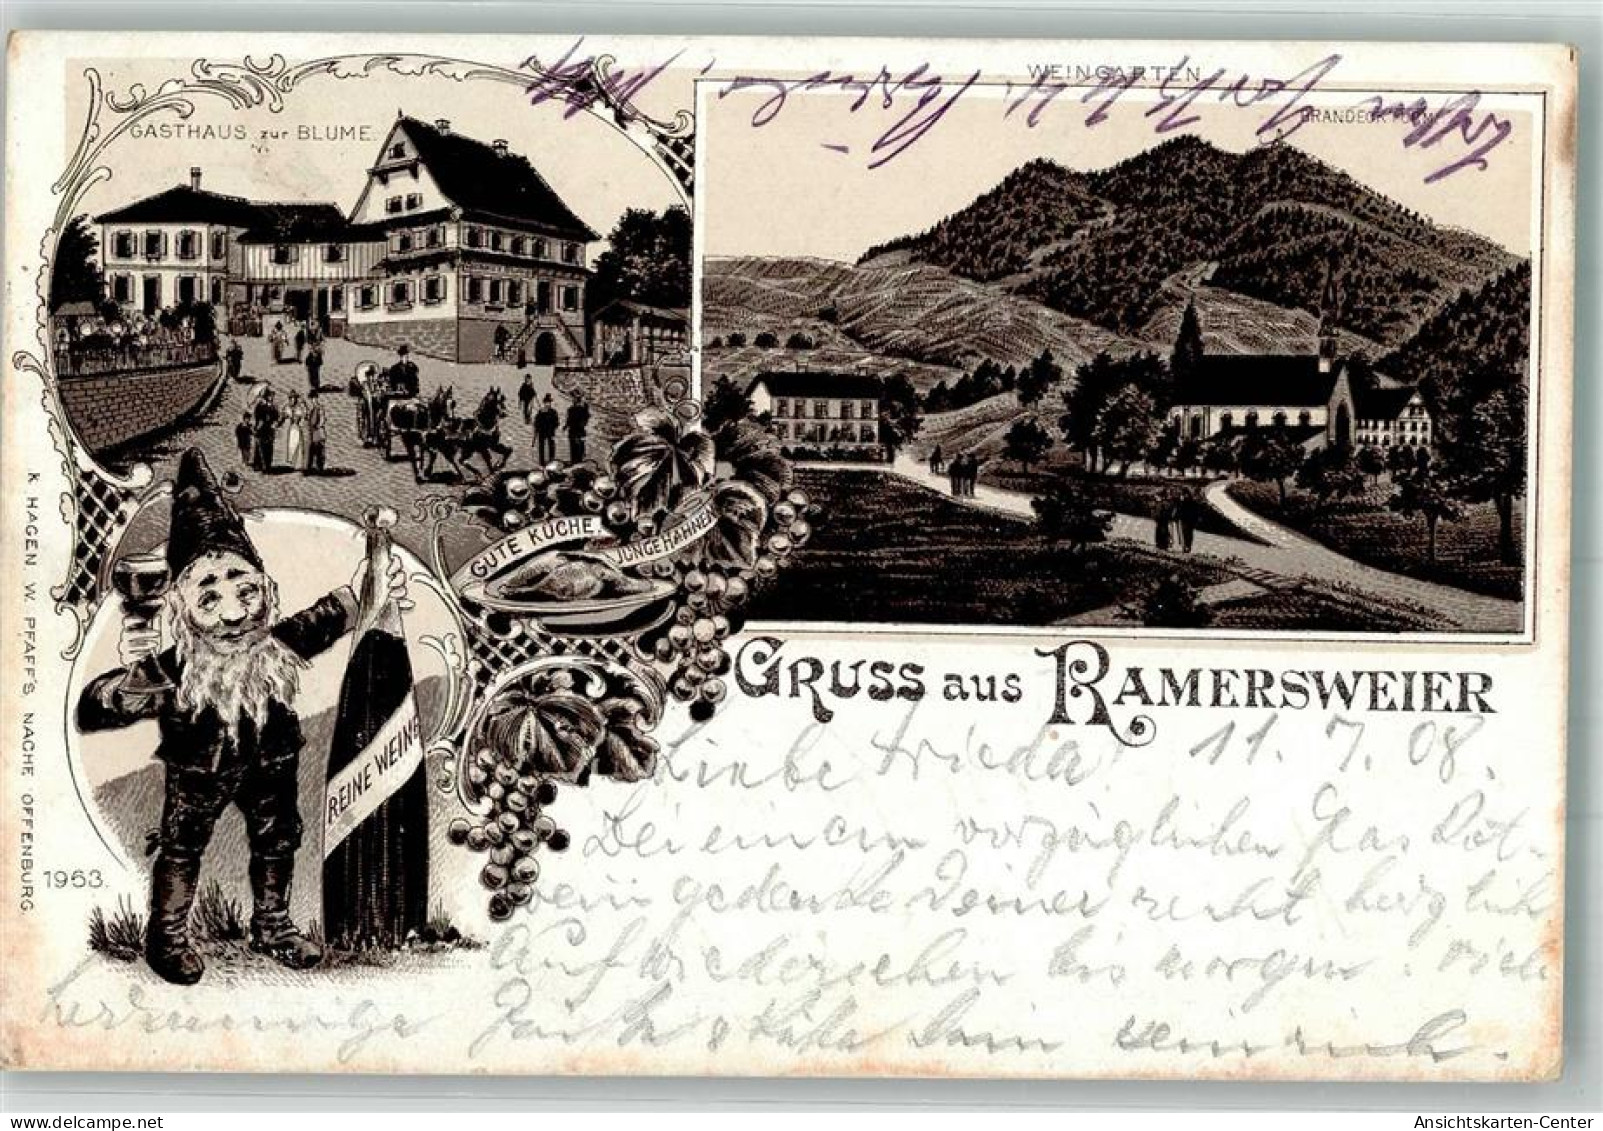 WEINGARTEN
GASTHAUS zur BLUME.
GUTE KÜCHE.
JUNGE HAHNEN
REINE WEINE
GRUSS aus RAMERSWEIER
K. HAGEN W. PFAFF'S NACHF. OFFENBURG
1953.
Liebe Frieda! 11. 7. 08.
Bei einem vorzüglichen Glas Rot-
wein gedenke Deiner recht herzlich
Auf Wiedersehen bis morgen. viele
herzinnige Grüße & Küsse Dein Heinrich.
Ansichtskarten-Center